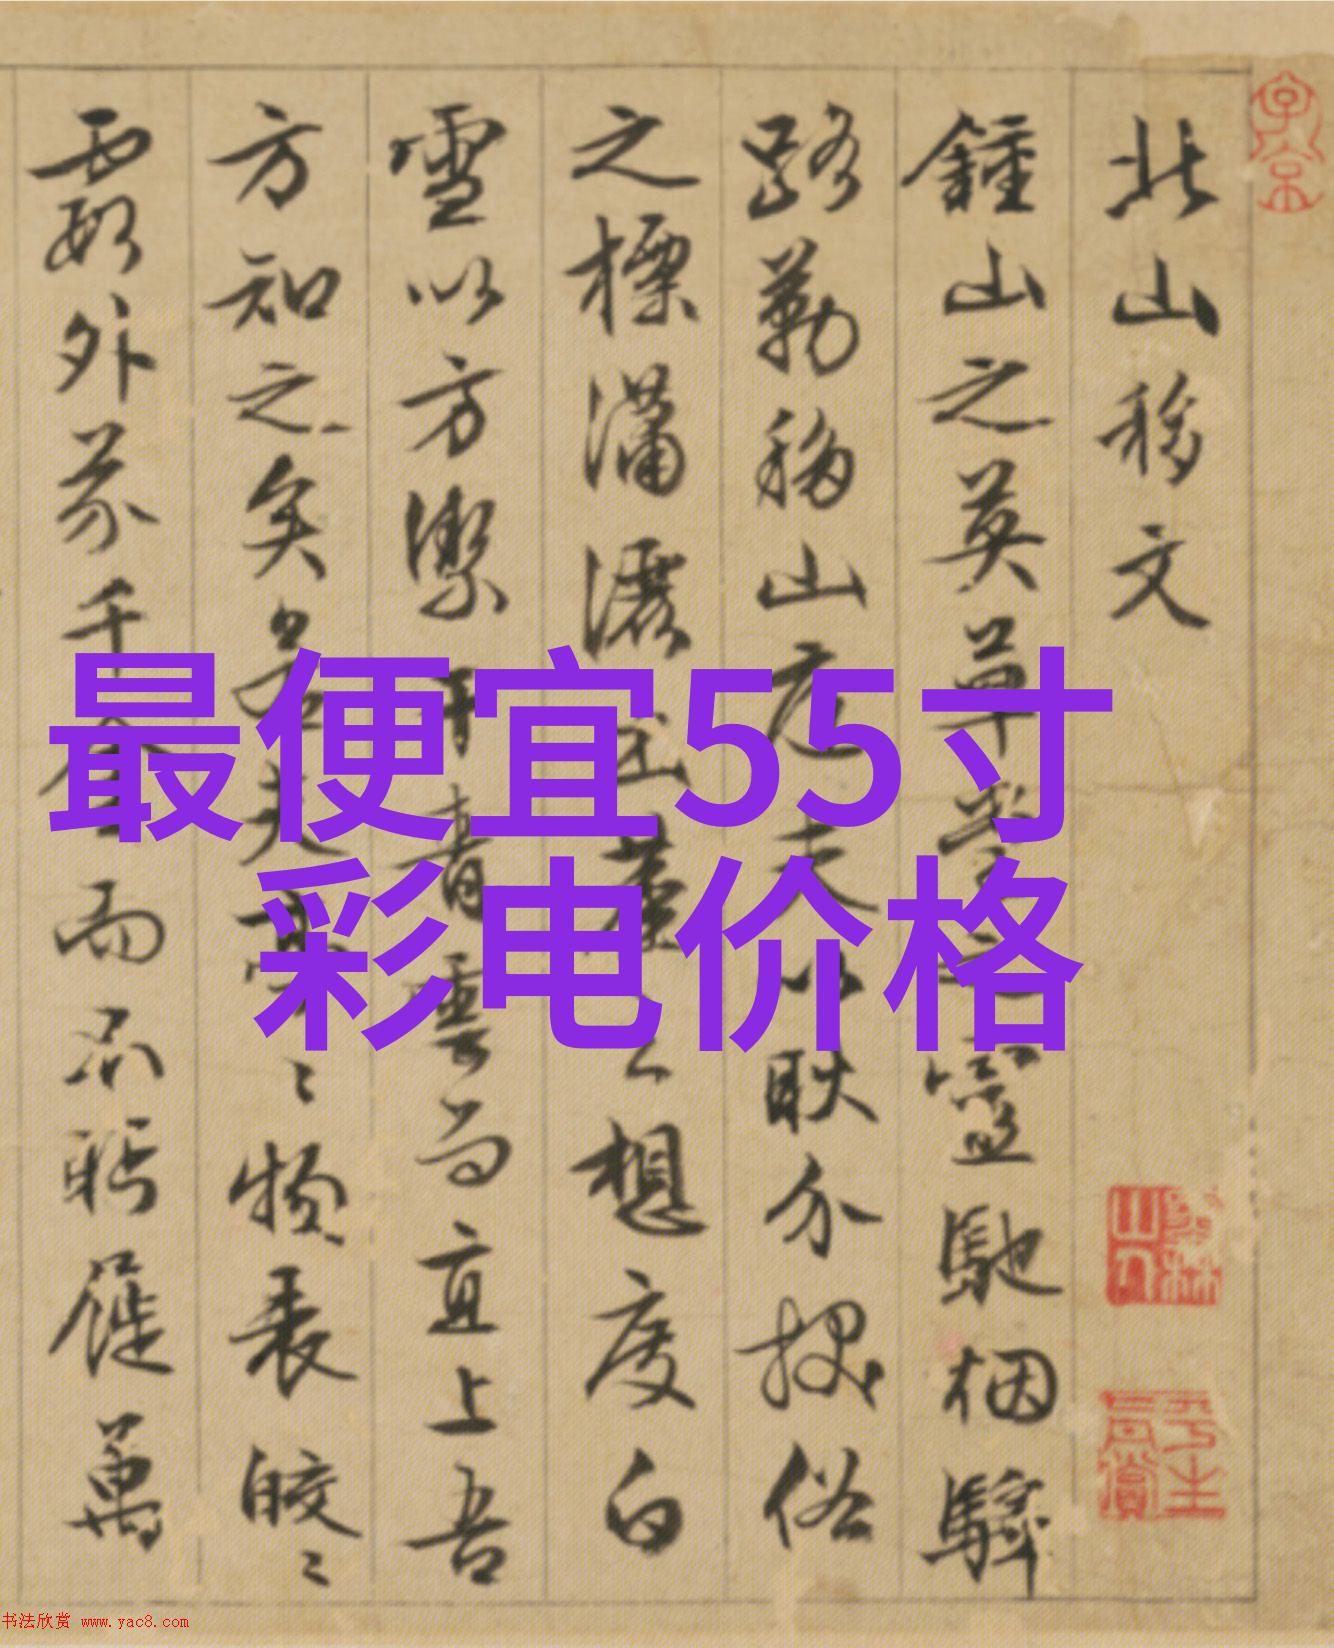 最便宜55寸
彩电价格
北山移文
鍾山之英草堂之靈馳烟驛
路勒移山庭夫以耿介拔俗
之標瀟灑出塵之想度白
雪以方潔干青雲而直上吾
方知之矣若夫亭〻物表皎〻
霞外芥千金而不眄屣萬
子京
平生真賞
书法欣赏 www.yac8.com